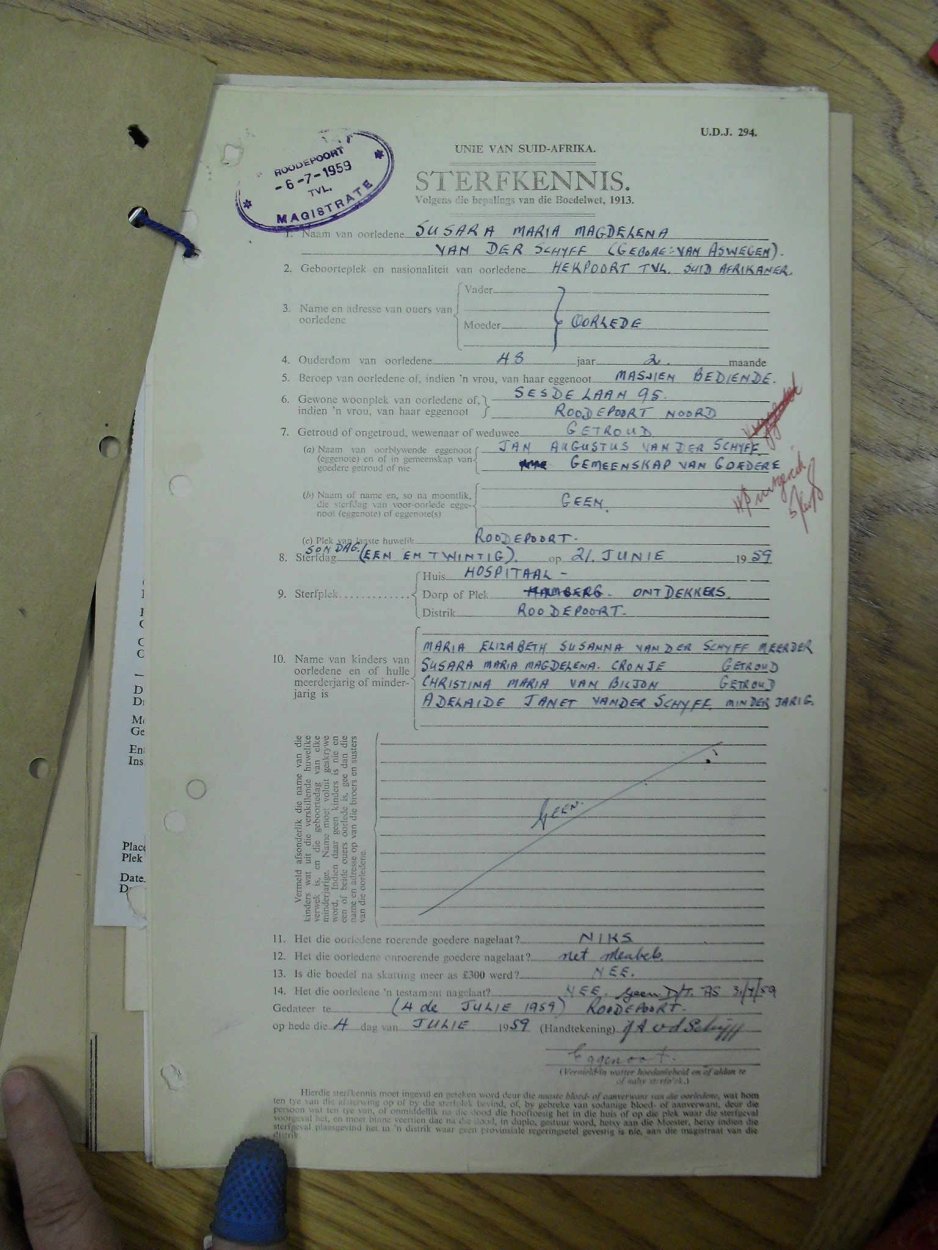 U.D.J. 294.
UNIE VAN SUID-AFRIKA.
STERFKENNIS.
Volgens die bepalings van die Boedelwet, 1913.
ROODEPOORT
-6-7-1959
TVL.
MAGISTRATE
1. Naam van oorledene SUSARA MARIA MAGDELENA
VAN DER SCHYFF (GEBORE: VAN ASWEGEN).
2. Geboorteplek en nasionaliteit van oorledene HEKPOORT TVL. SUID AFRIKANER.
3. Name en adresse van ouers van oorledene
Vader
Moeder
OORLEDE
4. Ouderdom van oorledene 48 jaar 2 maande
5. Beroep van oorledene of, indien 'n vrou, van haar eggenoot MASJIEN BEDIENDE.
6. Gewone woonplek van oorledene of, SESDE LAAN 95.
indien 'n vrou, van haar eggenoot ROODEPOORT NOORD
7. Getroud of ongetroud, wewenaar of weduwee GETROUD
(a) Naam van oorblywende eggenoot JAN AUGUSTUS VAN DER SCHYFF
(eggenote) en of in gemeenskap van GEMEENSKAP VAN GOEDERE
goedere getroud of nie
(b) Naam of name en, so na moontlik,
die sterfdag van voor-oorlede egge- GEEN.
noot (eggenote) of eggenote(s)
(c) Plek van laaste huwelik ROODEPOORT.
8. Sterfdag SONDAG. (EEN EN TWINTIG). op 21. JUNIE 1959
9. Sterfplek
Huis HOSPITAAL -
Dorp of Plek ONTDEKKERS.
Distrik ROODEPOORT.
10. Name van kinders van
oorledene en of hulle
meerderjarig of minder-
jarig is
MARIA ELIZABETH SUSANNA VAN DER SCHYFF MEERDER
SUSARA MARIA MAGDELENA. CRONJE GETROUD
CHRISTINA MARIA VAN BILJON GETROUD
ADELAIDE JANET VANDER SCHYFF MINDERJARIG.
Vermeld afsonderlik die name van die
kinders wat uit die verskillende huwelike
verwek is, en die geboortedag van elke
minderjarige. Name moet voluit geskrywe
word. Indien daar geen kinders is nie en
een of beide ouers oorlede is, gee dan die
name en adresse op van die broers en susters
van die oorledene.
Geen.
11. Het die oorledene roerende goedere nagelaat? NIKS
12. Het die oorledene onroerende goedere nagelaat? net meubels.
13. Is die boedel na skatting meer as £300 werd? NEE.
14. Het die oorledene 'n testament nagelaat? NEE. Geen D/T. AS 31/7/59
Gedateer te (4 de JULIE 1959) ROODEPOORT.
op hede die 4 dag van JULIE 1959 (Handtekening) J A v d Schyff
Eggenoot.
(Vermeld in watter hoedanigheid en of aldan te
of naby sterfte.)
Hierdie sterfkennis moet ingevul en geteken word deur die naaste bloed- of aanverwant van die oorledene, wat hom
ten tye van die afsterwing op of by die sterfplek bevind, of, by gebreke van sodanige bloed- of aanverwant, deur die
persoon wat ten tye van, of onmiddellik na die dood die hooftoesig het in die huis of op die plek waar die sterfgeval
voorgeval het, en moet binne veertien dae na die dood, in duplo, gestuur word, hetsy aan die Meester, hetsy indien die
sterfgeval plaasgevind het in 'n distrik waar geen provinsiale regeringsetel gevestig is nie, aan die magistraat van die
distrik.
Place
Plek
Date